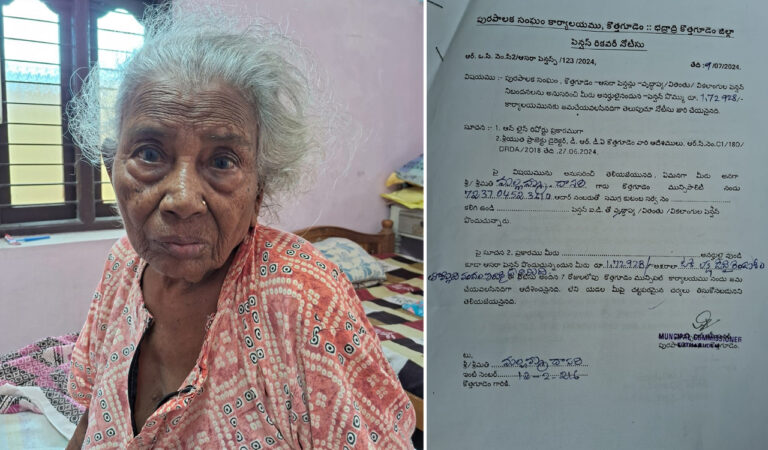 పురపాలక సంఘం కార్యాలయము, కొత్తగూడెం :: భద్రాద్రి కొత్తగూడెం జిల్లా
పెన్షన్ రికవరీ నోటీసు
ఆర్. ఒ.సి. నెం.సి2/ఆసరా పెన్షన్స్ /123 /2024, తేది : /07/2024.
విషయము :- పురపాలక సంఘం , కొత్తగూడెం –ఆసరా పెన్షను –వృద్ధాప్య/ వితంతు/ వికలాంగుల పెన్షన్
నిబంధనలను అనుసరించి మీరు అనర్హులైనందున –పెన్షన్ సొమ్ము రూ. 1,72,928/-
కార్యాలయమునకు జమచేయవలసినదిగా తెలుపుచూ నోటీసు జారీ చేయనైనది.
సూచన :- 1. ఆన్ లైన్ రిపోర్టు ప్రకారముగా
2.శ్రీయుత ప్రాజెక్టు డైరెక్టర్, డి. ఆర్. డి.ఏ కొత్తగూడెం వారి ఆదేశములు, ఆర్.సి.నెం.C1/180/
DRDA/2018 తేది .27.06.2024.
పై విషయమును అనుసరించి తెలియజేయునది , ఏమనగా మీరు అనగా
శ్రీ/ శ్రీమతి మల్లమ్మ దాసరి గారు కొత్తగూడెం మున్సిపాలిటీ నందు
ఆధార్ నెంబరుతో సమగ్ర కుటుంబ సర్వే నెం
కలిగి ఉండి పెన్షన్ ఐ.డి. తో వృద్ధాప్య /వితంతు /వికలాంగుల పెన్షన్
పొందుచున్నారు.
పై సూచన 2. ప్రకారము మీరు అనర్హులై వుండి
కూడా ఆసరా పెన్షన్ పొందుతున్నందున మీరు రూ.1,72,928/- అక్షరాలా
అందిన 7 రోజులలోపు కొత్తగూడెం మున్సిపల్ కార్యాలయము నందు జమ
చేయవలసినదిగా ఆదేశించనైనది. లేని యెడల మీపై చట్టపరమైన చర్యలు తీసుకొనబడునని
తెలియజేయనైనది.
MUNICIPAL COMMISSIONER
పురపాలక కొత్తగూడెం.
టు,
శ్రీ/ శ్రీమతి మల్లమ్మ దాసరి
ఇంటి నెంబర్ 12-2-216
కొత్తగూడెం గారికి.